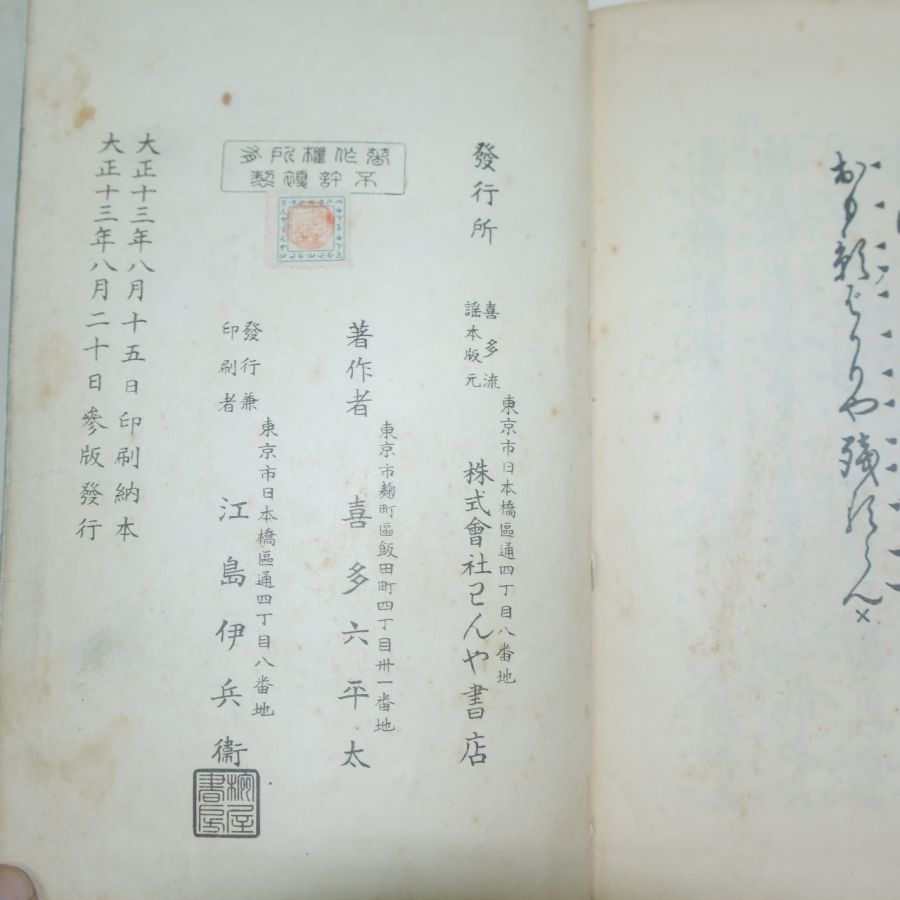 おも影ばかりや殘るらん
發行所
喜多流
謠本版元
東京市日本橋區通四丁目八番地
株式會社わんや書店
著作者
東京市麴町區飯田町四丁目卅一番地
喜多六平太
著作權所有
不許複製
發行兼
印刷者
東京市日本橋區通四丁目八番地
江島伊兵衞
椀屋書房
大正十三年八月十五日印刷納本
大正十三年八月二十日參版發行